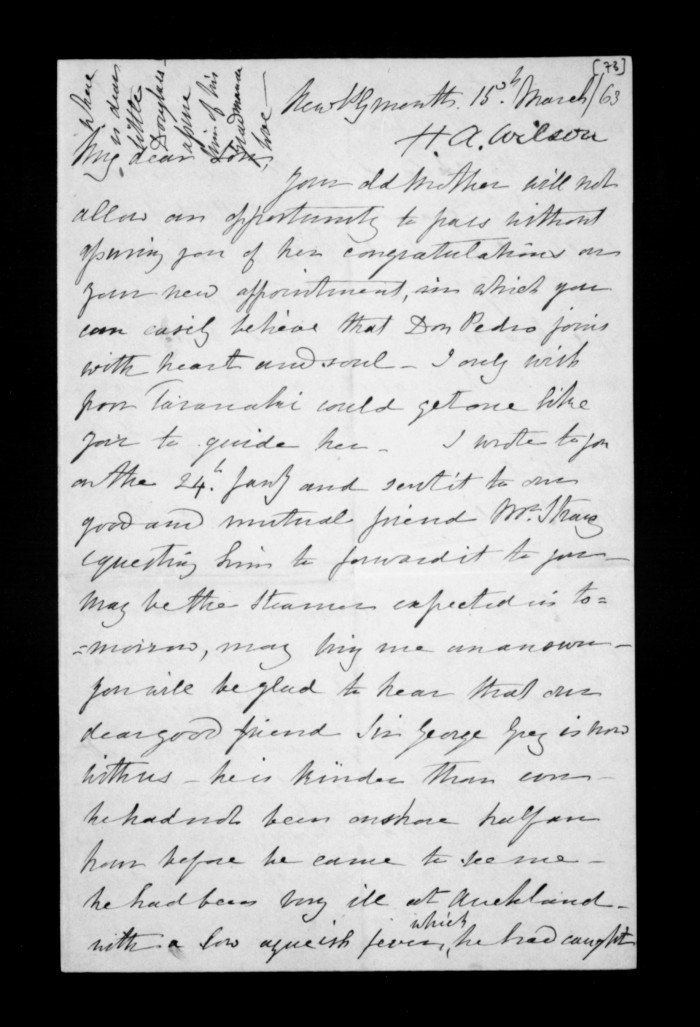 [73]
where
is dear
little
Douglas-
alpine
him of his
Grandmama
love -
New Plymouth. 15th March/63
H. A. Wilson
My dear Son,
Your old Mother will not
allow an opportunity to pass without
you of her congratulations on
your new appointment, in which you
can easily believe that Don Pedro joins
with heart and soul - I only wish
poor Taranaki could get one like
you to guide her - I wrote to you
on the 24th Jany and sent it to our
good and mutual friend Mr. Strang
requesting him to forward it to you -
May be the steamer expected in to=
=morrow, may bring me an answer -
you will be glad to hear that our
dear good friend Sir George Grey is now
with us - he is kinder than ever -
he had not been onshore half an
hour before he came to see me -
he had been very ill at Auckland -
with a low agueish fever, which he had caught